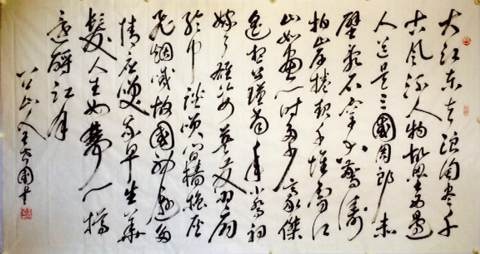 大江东去浪淘尽千
古风流人物故垒西边
人道是三國周郎赤
壁乱石穿空惊涛
拍岸捲起千堆雪江
山如画一时多少豪傑
遥想公瑾当年小乔初
嫁了雄姿英发羽扇
纶巾谈笑间樯橹灰
飞烟滅故國神遊多
情应笑我早生华
髮人生如夢一樽
还酹江月